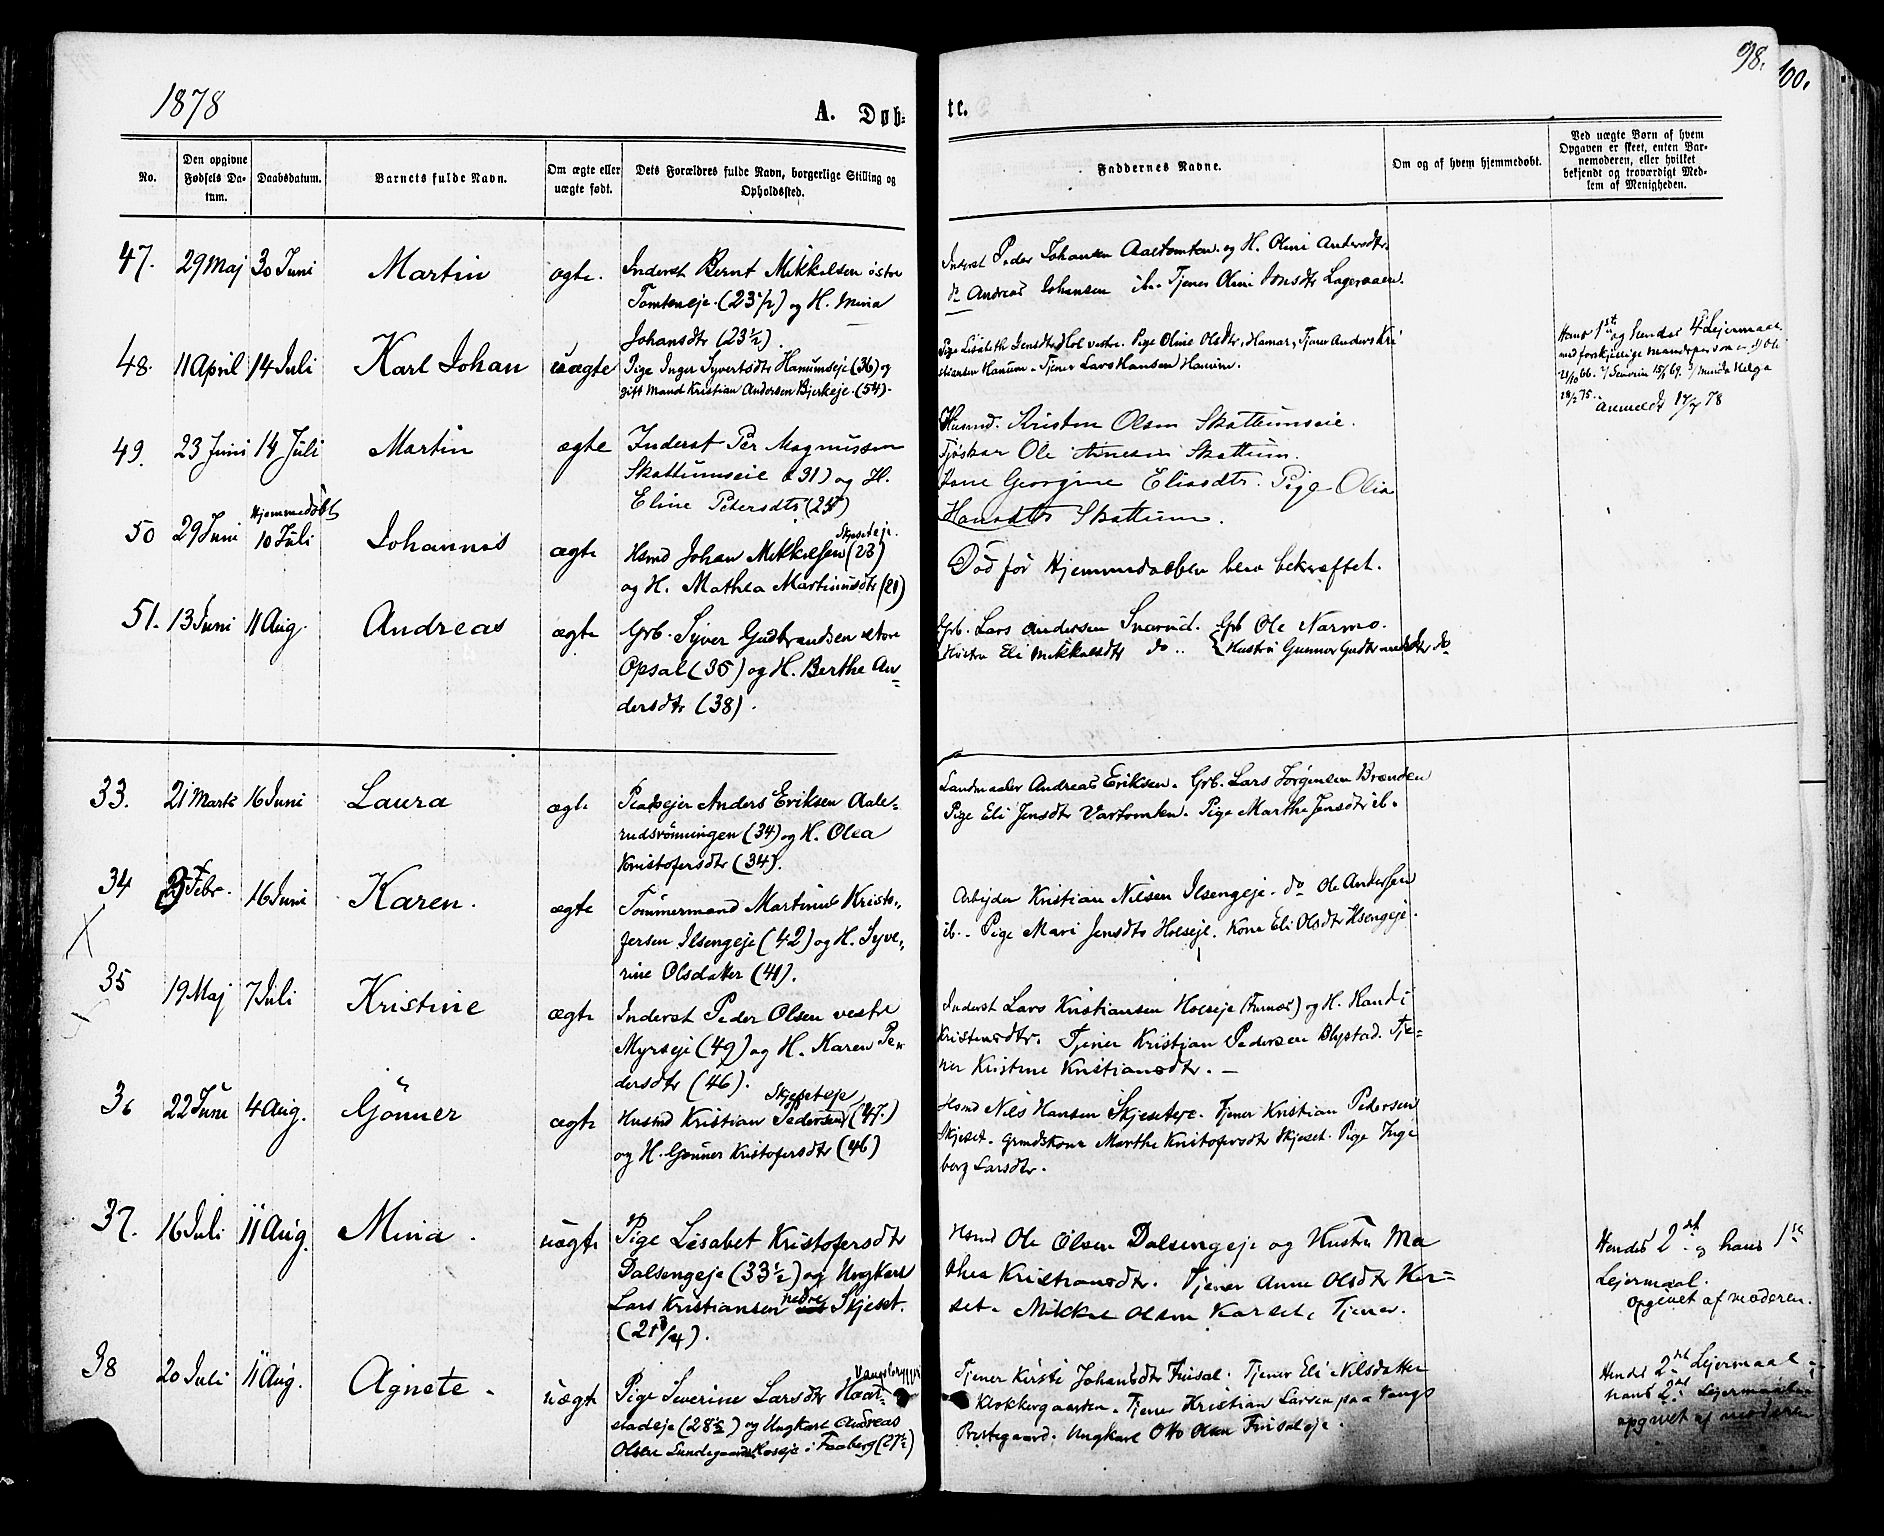 1878
A. Døb=
te.
98.
100.
No.
Den opgivne Fødsels Da-tum.
Daabsdatum.
Barnets fulde Navn.
Om ægte eller uægte født.
Dets Forældres fulde Navn, borgerlige Stilling og Opholdssted.
Faddernes Navne.
Om og af hvem hjemmedøbt.
Ved uægte Børn af hvem Opgaven er skeet, enten Bar-nemoderen, eller hvilket bekjendt og troværdigt Med-lem af Menigheden.
47. 29 Maj 30 Juni Martin ægte. Inderst Bernt Mikkelsen østre
Tomteneje. (23 1/2) og H. Mina
Johansdtr (23 1/2).
Inderst Peder Johansen Aaltomten. og H. Olini Andersdtr.
do Andreas Johansen ib. Tjener Olini Jonsdtr Lageraaen.
48. 11 April 14 Juli Karl Johan uægte Pige Inger Syvertsdtr Hanumseje (36) og
gift Mand Kristian Andersen Bjerkeje. (54).
Pige Lisabeth Jensdtr Hol vestre. Pige Oline Olsdtr, Hamar, Tjener Anders Kri
stiansen Hanum. Tjener Lars Hansen Hanum.
Hans 1ste og hendes 4de Lejermaal
med forskjellige Mandspersoner 1) Ole
21/10 66. 2) Severin 15/1 69. 3) Minda Helga
28/2 75. Anmeldt 14/7 78
49. 23 Juni 14 Juli Martin ægte Inderst Per Magnussen
Skattumseie (31) og H.
Eline Petersdtr (25)
Husmd. Kristen Olsen Skattumseie.
Fjøskar Ole Arnesen Skattum.
Kone Georgine Eliasdtr. Pige Olia
Hansdtr Skattum.
50 29 Juni Hjemmedøbt
10 Juli Johannes ægte Hsmd Johan Mikkelsen Skjeseteje. (23)
og H. Mathea Martinusdtr (21)
Død før Hjemmedaaben blev bekræftet.
51. 13 Juni 11 Aug. Andreas ægte Grb. Syver Gudbrandsen store
Opsal (35) og H. Berthe An=
dersdtr (38).
Grb. Lars Andersen Snarud. Grb Ole Narmo.
Hustru Eli Mikkelsdtr do .. Hustru Gunnor Gudbrandsdtr do
33. 21 Marts 16 Juni Laura ægte Pladsejer Anders Eriksen Aale=
rudsrønningen (34) og H. Olea
Kristofersdtr (34).
Landmaaler Andreas Eriksen. Grb. Lars Jørgensen Brenden
Pige Eli Jensdtr Vartomten. Pige Marthe Jensdtr ib.
34 Febr. 16 Juni Karen. ægte Tømmermand Martinus Kristo=
fersen Ilsengeje (42) og H. Syve=
rine Olsdatter (41).
Arbejder Kristian Nilsen Ilsengeje. do Ole Andersen
ib. Pige Mari Jensdtr Holseje. Kone Eli Olsdtr Ilsengeje.
35 19 Maj 7 Juli Kristine ægte Inderst Peder Olsen vestre
Myrseje (49) og H. Karen Pe=
dersdtr (46).
Inderst Lars Kristiansen Holseje (Furnæs) og H. Randi
Kristensdtr. Tjener Kristian Pedersen Blystad. Tje=
ner Kristine Kristiansdtr. —
36 22 Juni 4 Aug. Gönner ægte Husmd Kristian Pedersen Skjeseteje (47.)
og H. Gønner Kristofersdtr (46)
Hsmd Nils Hansen Skjeseteje. Tjener Kristian Pedersen
Skjeset. Grmdskone Marthe Kristofersdtr Skjeset. Pige Inge
borg Larsdtr.
37. 16 Juli 11 Aug. Mina. uægte Pige Lisabet Kristofersdtr
Dalsengeje (33 1/2) og Ungkarl
Lars Kristiansen nedre Skjeset.
(21 3/4).
Hsmd Ole Olsen Dalsengeje og Hustru Ma
thea Kristiansdtr. Tjener Anne Olsdtr Kar=
set. Mikkel Olsen Karset, Tjener.
Hendes 2det og hans 1ste
Lejermaal.
opgivet af moderen.
38 20 Juli 11 Aug. Agnete. uægte Pige Severine Larsdtr
stadeje (28 1/2) og Ungkarl Andreas
Olsen Lundegaards Hoseje i Faaberg (27 1/2)
Tjener Kirsti Johansdtr Finsal. Tjener Eli Nilsdatter
Klokkergaarden. Tjener Kristian Larsen paa Vangs
Prestegaard. Ungkarl Otto Olsen Finsaleje.
Hendes 2det Lejermaal
hans 2det Lejermaal
opgivet af moderen